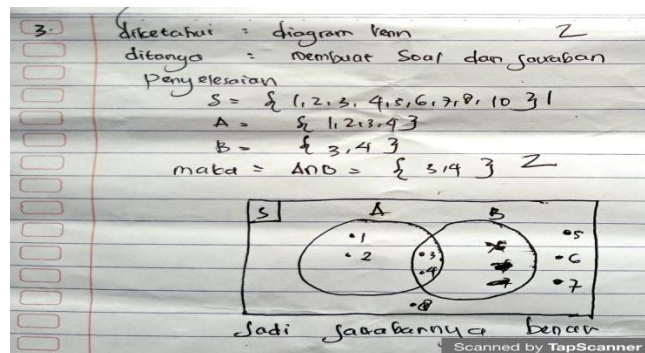 3. diketahui : diagram venn 2
ditanya : membuat Soal dan jawaban
Penyelesaian
S = { 1, 2, 3, 4, 5, 6, 7, 8, 10 }
A = { 1, 2, 3, 4 }
B = { 3, 4 }
maka = A∩B = { 3, 4 } 2
S A B
•1 •3 •5
•2 •4 •6
•7
•8
Jadi jawabannya benar
Scanned by TapScanner